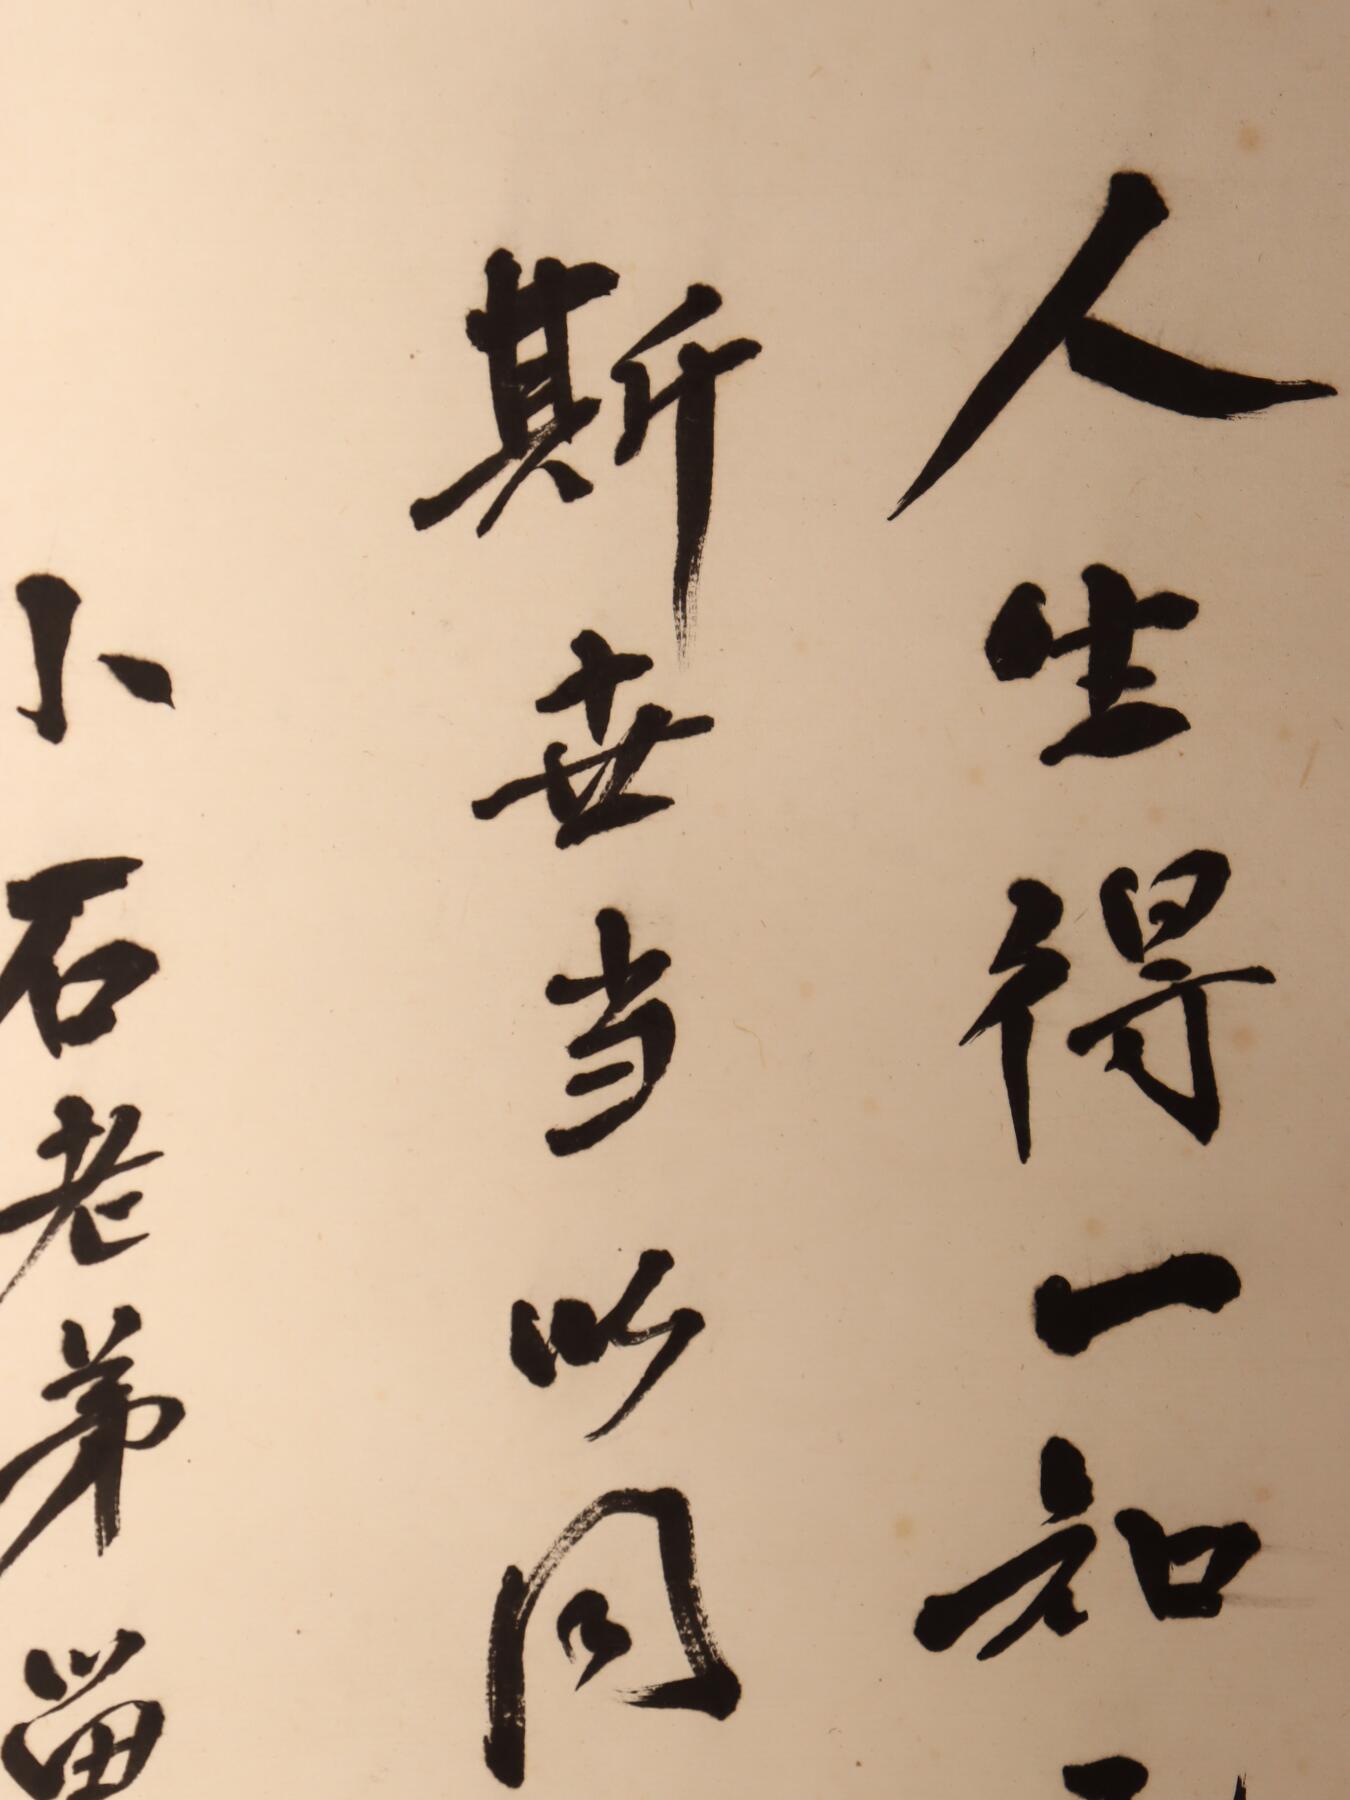 人生得一知
斯世当以同
小石老弟留